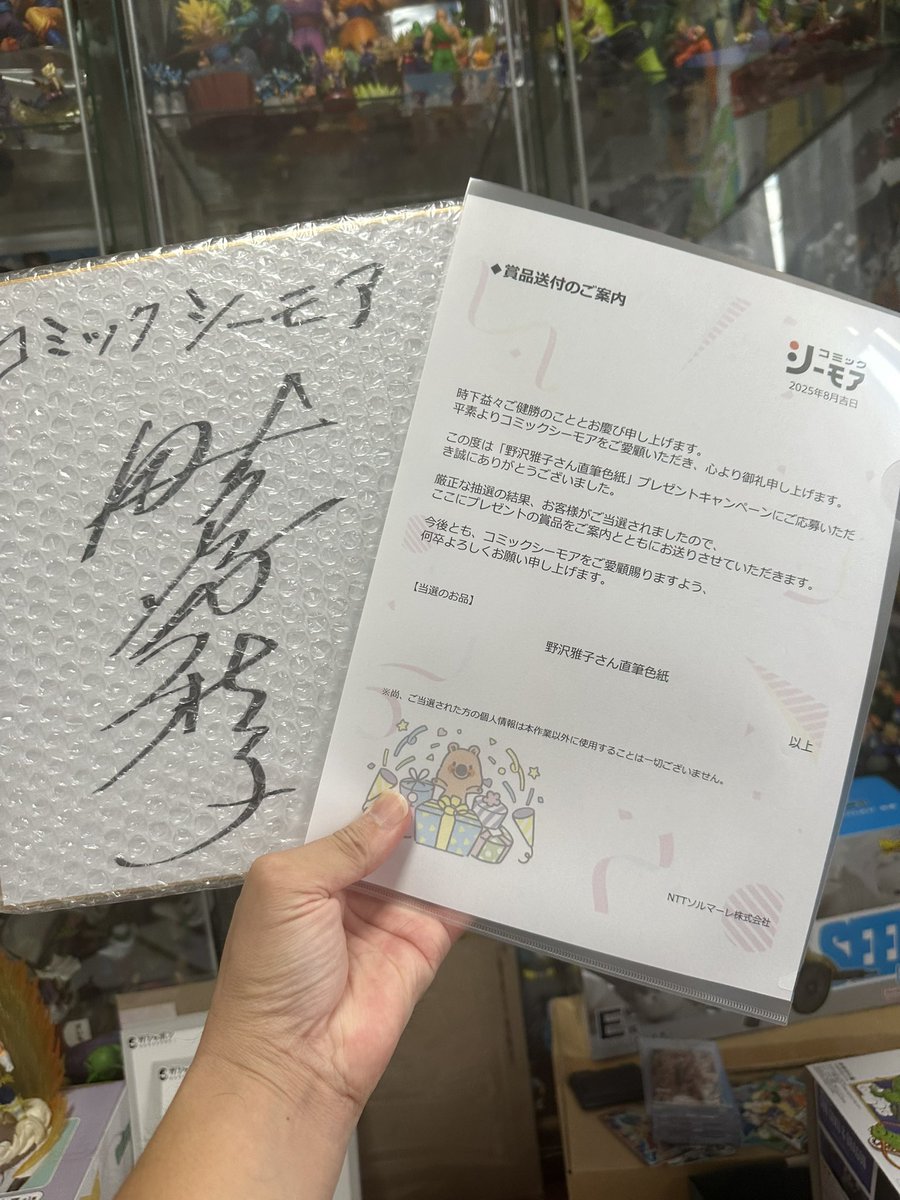 コミックシーモア
◆賞品送付のご案内
コミック
シーモア
2025年8月吉日
時下益々ご健勝のこととお慶び申し上げます。
平素よりコミックシーモアをご愛顧いただき、心より御礼申し上げます。
この度は「野沢雅子さん直筆色紙」プレゼントキャンペーンにご応募いただ
き誠にありがとうございました。
厳正な抽選の結果、お客様がご当選されましたので、
ここにプレゼントの賞品をご案内とともにお送りさせていただきます。
今後とも、コミックシーモアをご愛顧賜りますよう、
何卒よろしくお願い申し上げます。
【当選のお品】
野沢雅子さん直筆色紙
以上
※尚、ご当選された方の個人情報は本作業以外に使用することは一切ございません。
NTTソルマーレ株式会社